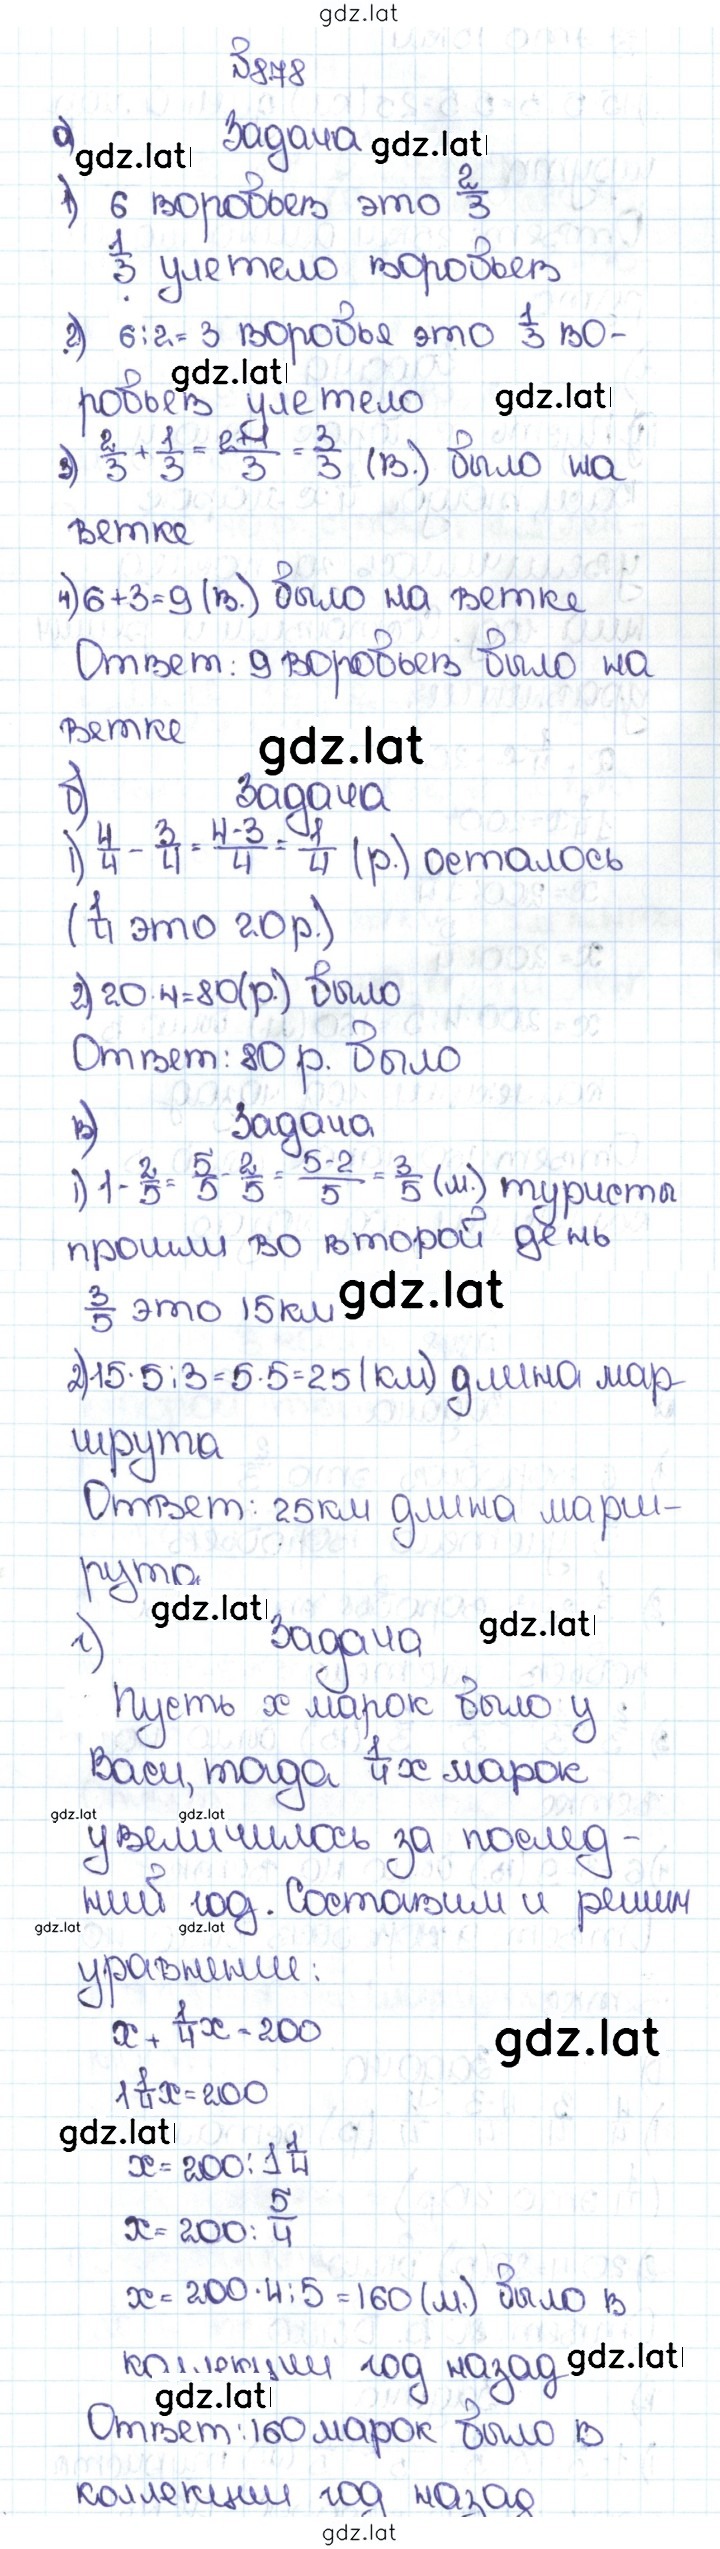 gdz.lat
№878
а) Задача
gdz.lat gdz.lat
1) 6 воробьев это 2/3
1/3 улетело воробьев
2) 6:2=3 воробья это 1/3 во-
gdz.lat
робьев улетело gdz.lat
3) 2/3 + 1/3 = 2+1/3 = 3/3 (в.) было на
ветке
4) 6+3=9 (в.) было на ветке
Ответ: 9 воробьев было на
ветке gdz.lat
б) Задача
1) 4/4 - 3/4 = 4-3/4 = 1/4 (р.) осталось
(1/4 это 20р.)
2) 20·4=80(р.) было
Ответ: 80 р. было
в) Задача
1) 1 - 2/5 = 5/5 - 2/5 = 5-2/5 = 3/5 (м.) туристы
прошли во второй день
3/5 это 15км gdz.lat
2) 15·5:3=5·5=25(км) длина мар
шрута
Ответ: 25км длина марш-
рута
gdz.lat gdz.lat
г) Задача
Пусть x марок было у
Васи, тогда 1/4x марок
gdz.lat gdz.lat
увеличилось за послед-
ний год. Составим и решим
gdz.lat gdz.lat
уравнение:
x + 1/4x = 200
gdz.lat
1 1/4x=200
gdz.lat
x= 200:1 1/4
x= 200: 5/4
x= 200·4:5=160(м.) было в
коллекции год назад gdz.lat
gdz.lat
Ответ: 160 марок было в
коллекции год назад
gdz.lat